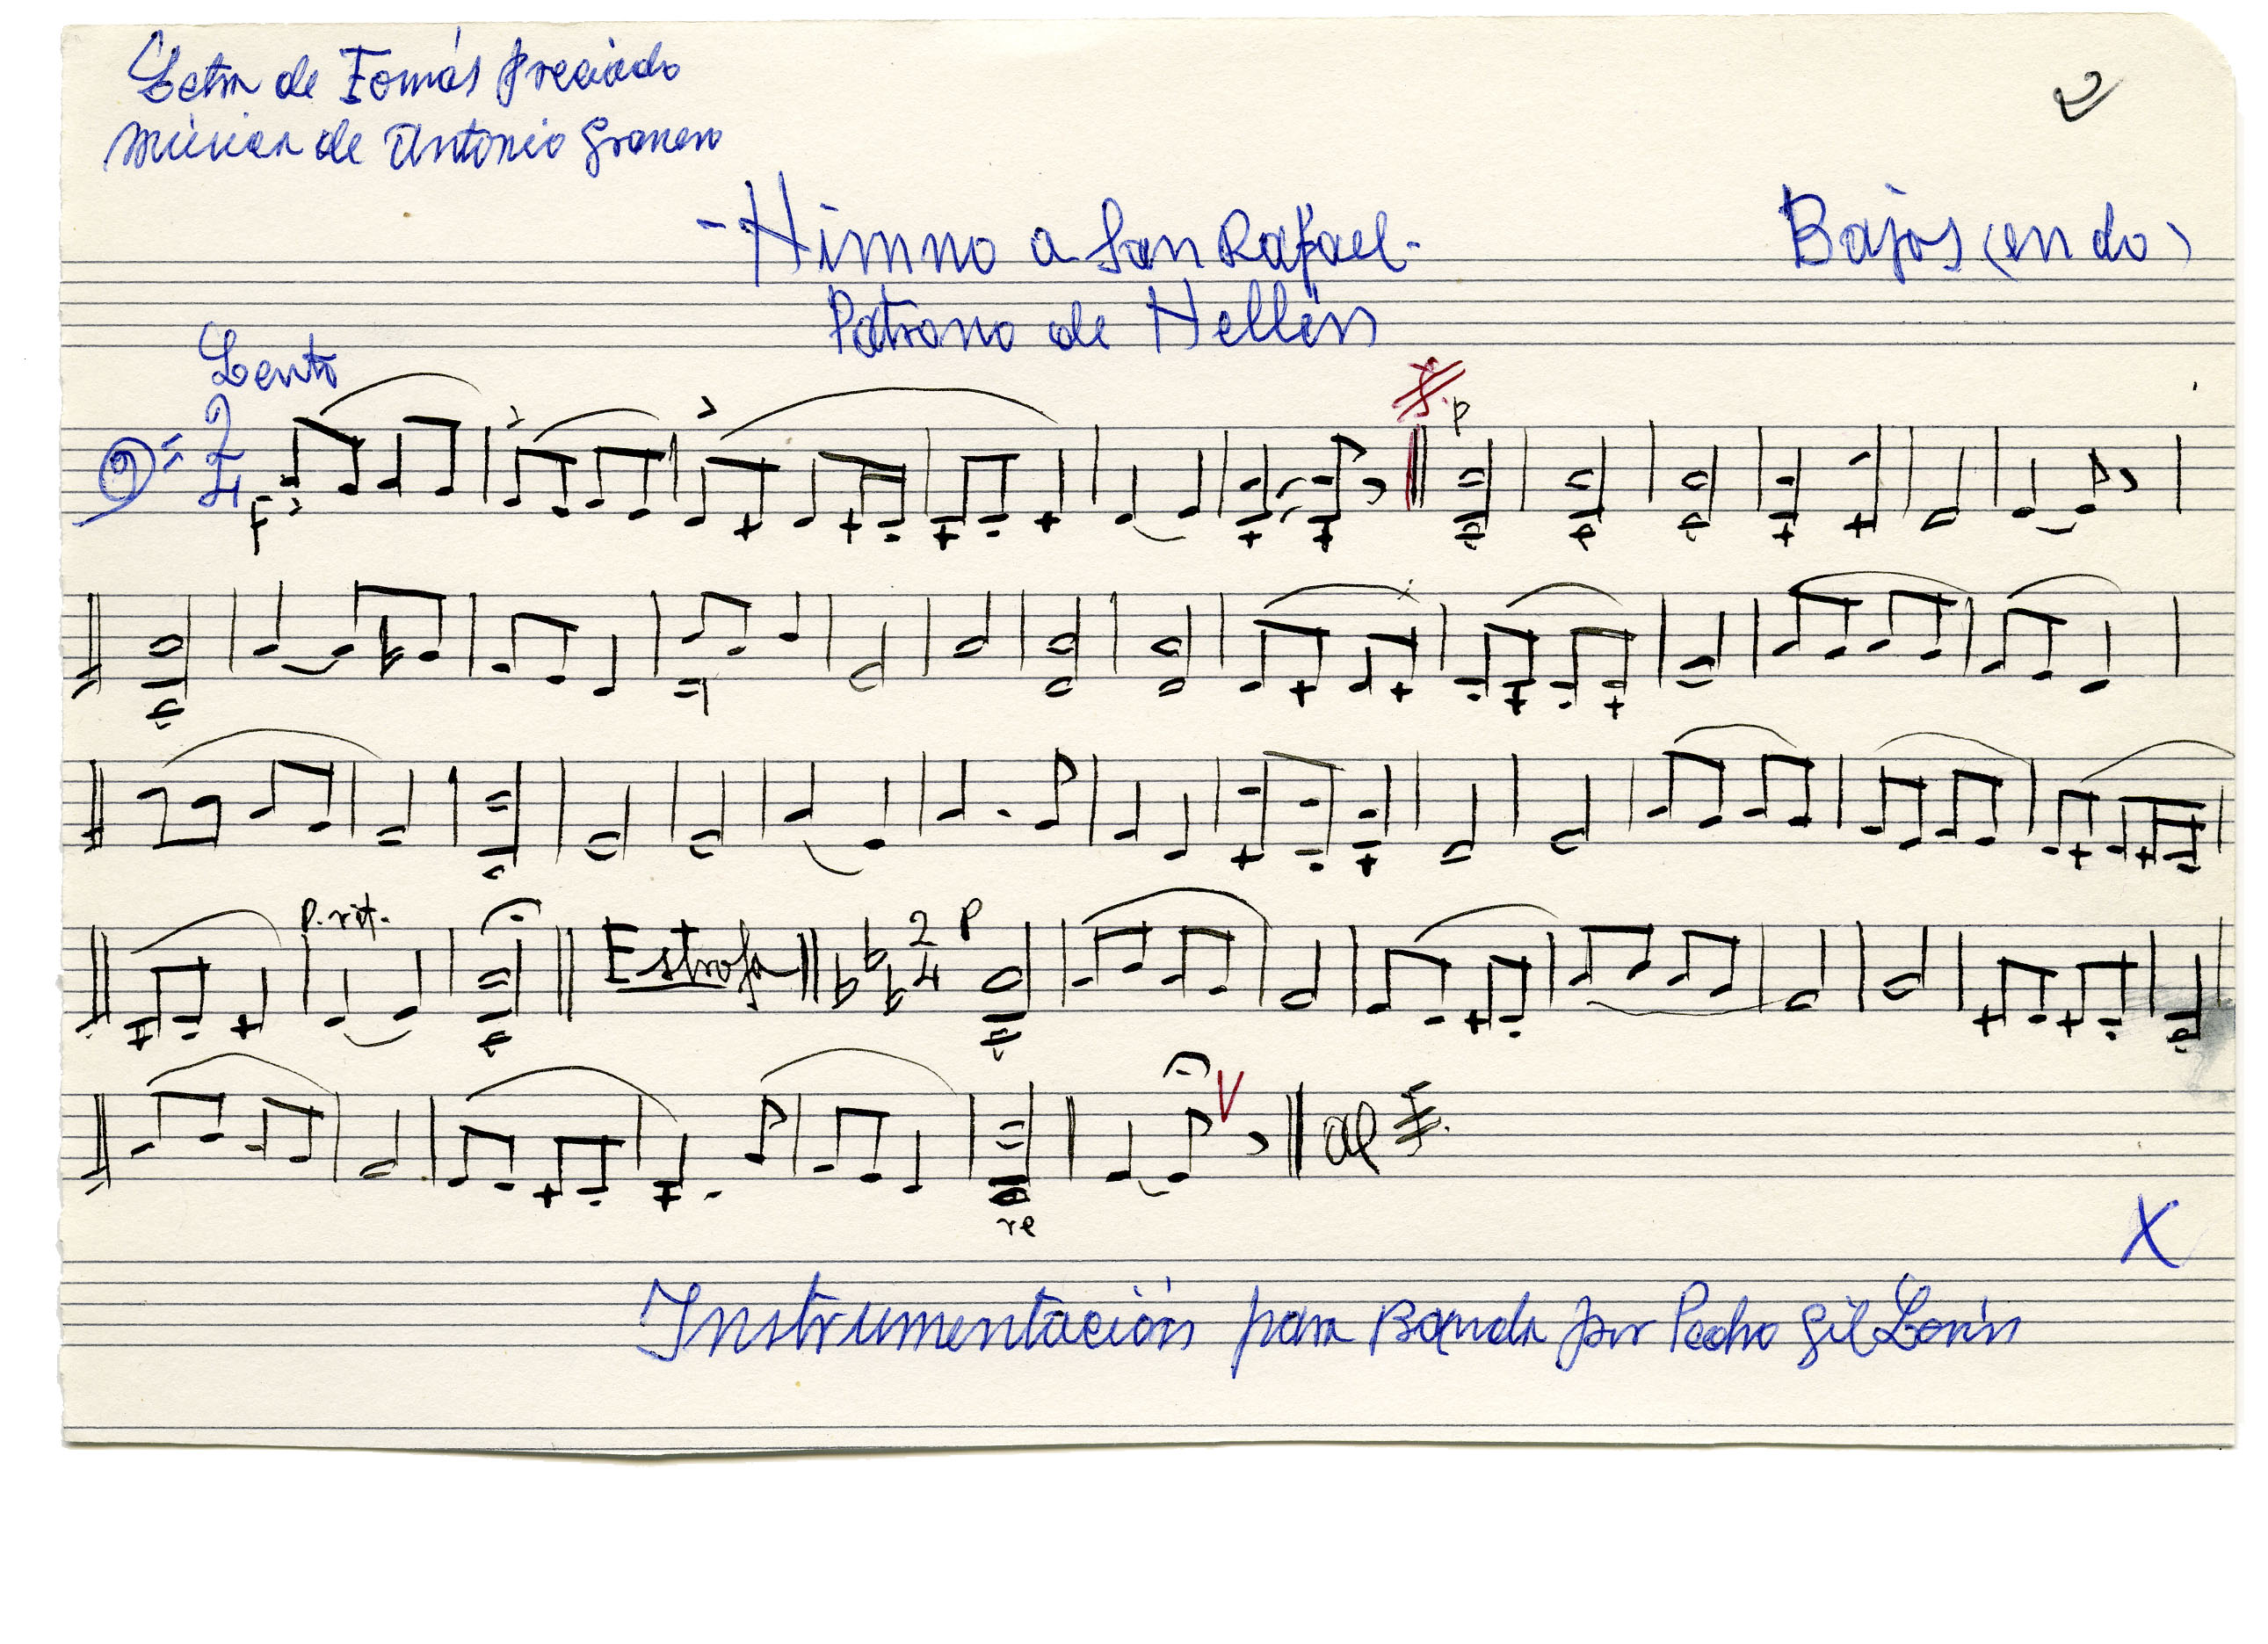 Letra de Tomás Preciado
Música de Antonio Granero
2
- Himno a San Rafael -
Bajos (en do)
Patrono de Hellín
Lento
2
4
f
p
p. rit.
Estrofa
2
4
p
re
al
X
Instrumentación para Banda por Pedro Gil Lerín